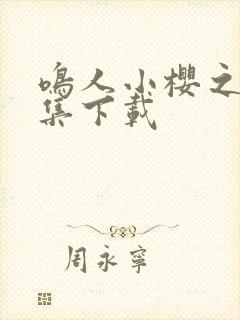 鳴人小櫻之
集下載
周永寧